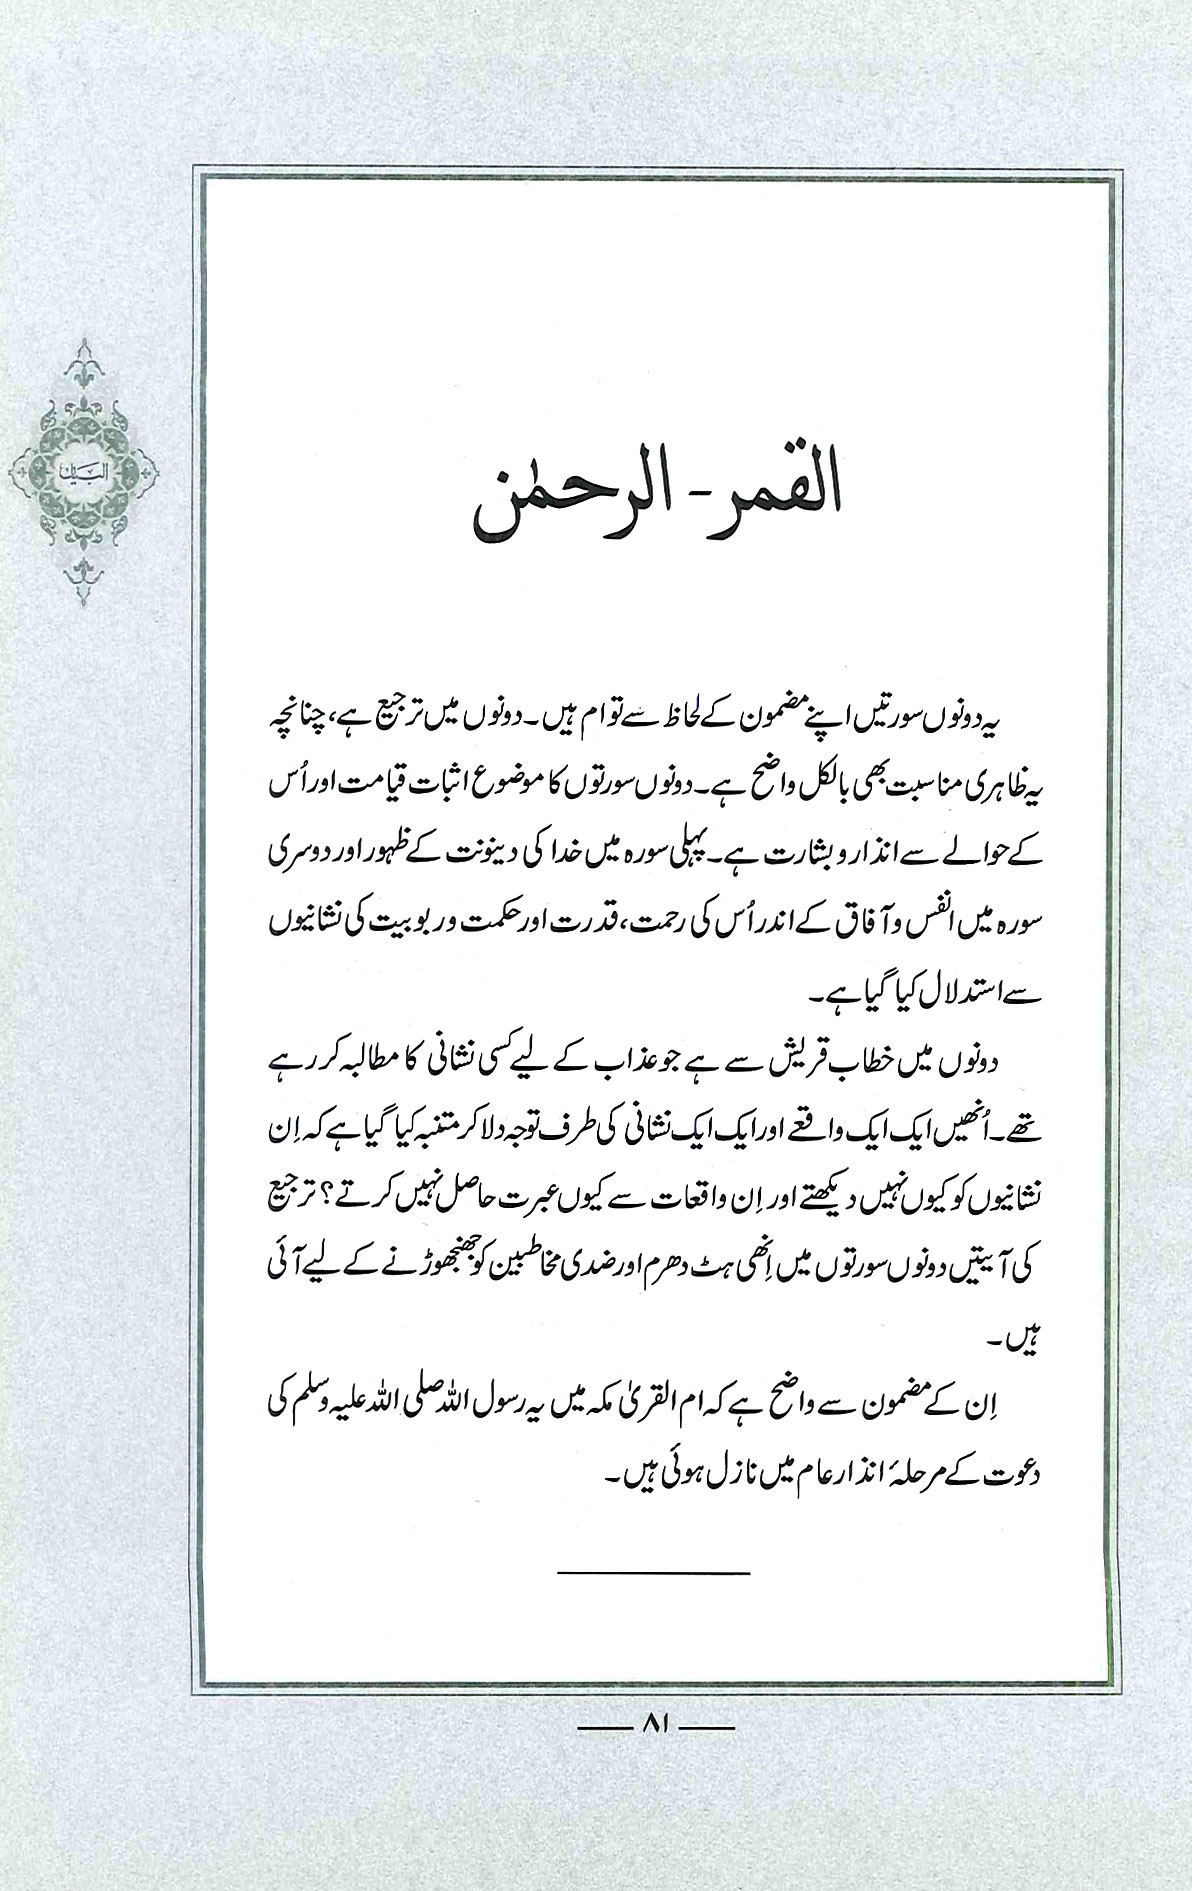 البیان
القمر - الرحمٰن
یہ دونوں سورتیں اپنے مضمون کے لحاظ سے توام ہیں۔ دونوں میں ترجیع ہے، چنانچہ
یہ ظاہری مناسبت بھی بالکل واضح ہے۔ دونوں سورتوں کا موضوع اثبات قیامت اور اُس
کے حوالے سے انذار و بشارت ہے۔ پہلی سورہ میں خدا کی دینونت کے ظہور اور دوسری
سورہ میں انفس و آفاق کے اندر اُس کی رحمت، قدرت اور حکمت و ربوبیت کی نشانیوں
سے استدلال کیا گیا ہے۔
دونوں میں خطاب قریش سے ہے جو عذاب کے لیے کسی نشانی کا مطالبہ کر رہے
تھے۔ اُنھیں ایک ایک واقعے اور ایک ایک نشانی کی طرف توجہ دلا کر متنبہ کیا گیا ہے کہ اِن
نشانیوں کو کیوں نہیں دیکھتے اور اِن واقعات سے کیوں عبرت حاصل نہیں کرتے؟ ترجیع
کی آیتیں دونوں سورتوں میں اِنھی ہٹ دھرم اور ضدی مخاطبین کو جھنجھوڑنے کے لیے آئی
ہیں۔
اِن کے مضمون سے واضح ہے کہ ام القریٰ مکہ میں یہ رسول اللہ صلی اللہ علیہ وسلم کی
دعوت کے مرحلۂ انذار عام میں نازل ہوئی ہیں۔
۸۱